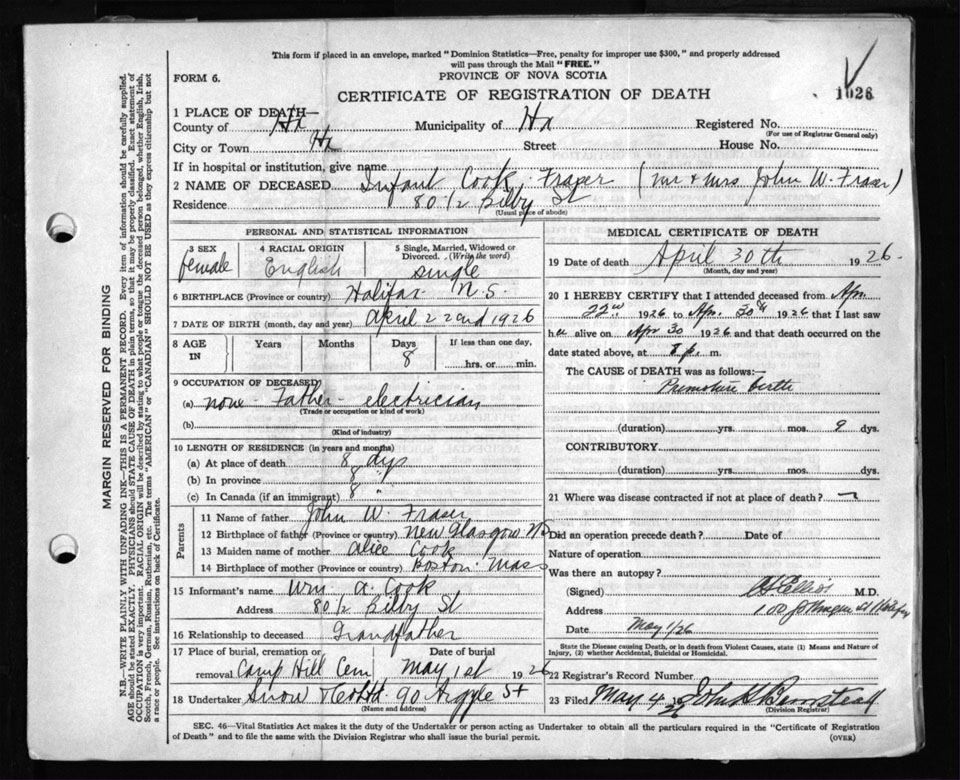 This form if placed in an envelope, marked "Dominion Statistics—Free, penalty for improper use $300," and properly addressed
will pass through the Mail "FREE."
PROVINCE OF NOVA SCOTIA
FORM 6.
1026
CERTIFICATE OF REGISTRATION OF DEATH
1 PLACE OF DEATH—
County of Hx Municipality of Hx Registered No.
(For use of Registrar General only)
City or Town Hx Street House No.
If in hospital or institution, give name
2 NAME OF DECEASED Infant Cook Fraser (Mr + Mrs John W. Fraser)
Residence 80 1/2 Bilby St
(Usual place of abode)
PERSONAL AND STATISTICAL INFORMATION
3 SEX 4 RACIAL ORIGIN 5 Single, Married, Widowed or
Divorced. (Write the word)
female English single
6 BIRTHPLACE (Province or country) Halifax N.S.
7 DATE OF BIRTH (month, day and year) April 22nd 1926
8 AGE IN Years Months Days If less than one day,
8 hrs. or min.
9 OCCUPATION OF DECEASED
(a) none - Father - electrician
(Trade or occupation or kind of work)
(b)
(Kind of industry)
10 LENGTH OF RESIDENCE (in years and months)
(a) At place of death 8 dys
(b) In province 8 "
(c) In Canada (if an immigrant) 8 "
Parents
11 Name of father John W. Fraser
12 Birthplace of father (Province or country) New Glasgow NS
13 Maiden name of mother Alice Cook
14 Birthplace of mother (Province or country) Boston Mass
15 Informant's name Wm. A. Cook
Address 80 1/2 Bilby St
16 Relationship to deceased Grandfather
17 Place of burial, cremation or Date of burial
removal Camp Hill Cem May 1st 1926
18 Undertaker Snow 90 Argyle St
(Name and address)
MEDICAL CERTIFICATE OF DEATH
19 Date of death April 30th 1926.
(Month, day and year)
20 I HEREBY CERTIFY that I attended deceased from Apr.
22nd 1926 to Apr. 30th 1926 that I last saw
her alive on Apr 30 1926 and that death occurred on the
date stated above, at p. m.
The CAUSE of DEATH was as follows:—
Premature birth
(duration) yrs. mos. 9 dys.
CONTRIBUTORY.
(duration) yrs. mos. dys.
21 Where was disease contracted if not at place of death? —
Did an operation precede death? Date of
Nature of operation
Was there an autopsy?
(Signed) M.D.
Address 100
Date May 1/26
State the Disease causing Death, or in death from Violent Causes, state (1) Means and Nature of
Injury, (2) whether Accidental, Suicidal or Homicidal.
22 Registrar's Record Number
23 Filed May 4 26 John
(Division Registrar)
SEC. 46—Vital Statistics Act makes it the duty of the Undertaker or person acting as Undertaker to obtain all the particulars required in the "Certificate of Registration
of Death" and to file the same with the Division Registrar who shall issue the burial permit. (OVER)
MARGIN RESERVED FOR BINDING
N.B.—WRITE PLAINLY WITH UNFADING INK—THIS IS A PERMANENT RECORD. Every item of information should be carefully supplied.
AGE should be stated EXACTLY. PHYSICIANS should STATE CAUSE OF DEATH in plain terms, so that it may be properly classified. Exact statement of
OCCUPATION is very important. RACIAL ORIGIN will be described by stating to what people or tongue the deceased person belonged, whether English, Irish,
Scotch, French, German, Russian, Ruthenian, etc. The terms "AMERICAN" or "CANADIAN" SHOULD NOT BE USED as they express citizenship but not
a race or people. See instructions on back of Certificate.